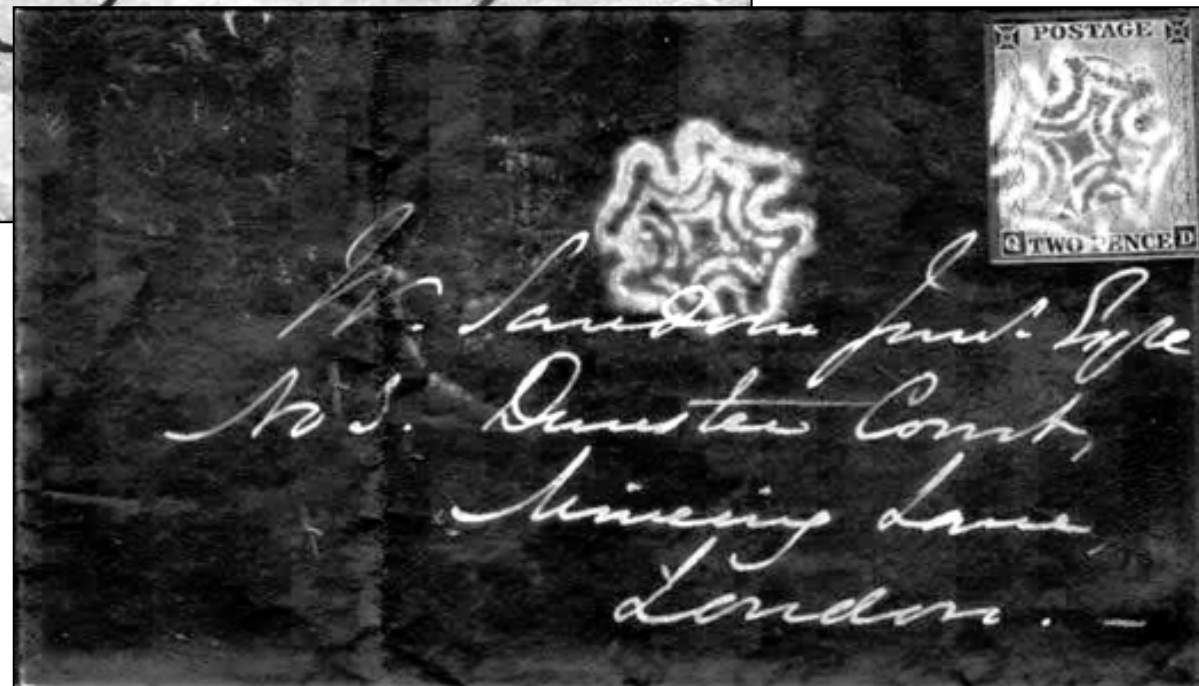 POSTAGE
Q TWO PENCE D
Junr.
No 3. Dunster Court,
Mincing Lane
London. –